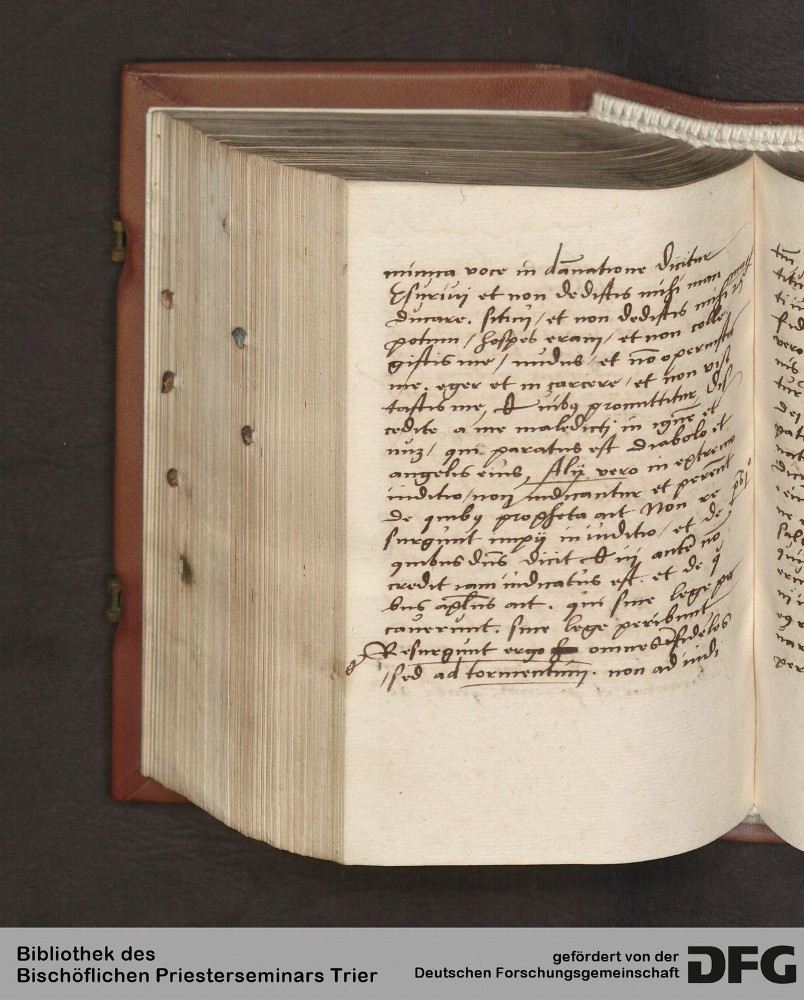 voce in dānatione dicitur
Esurivi et non dedistis mihi man
ducare. sitivi / et non dedistis mihi
potum / hospes eram / et non colle
gistis me / nudus / et nō operuistis
me. eger et in carcere / et non visi
tastis me, & promittitur, Dis
cedite a me maledicti in ignē et
num / qui paratus est diabolo et
angelis eius, Alij vero in extremo
iuditio / non iudicantur et pereūt
de quibus propheta ait Non re
surgunt impij in iuditio / et de
quibus dn̄s dicit Qui autē nō
credit iam iudicatus est. et de q
bus apl̄us ait. qui sine lege pec
caverunt. sine lege peribunt
Resurgunt ergo omnes īfideles
/ sed ad tormentum. non ad iudi
Bibliothek des
Bischöflichen Priesterseminars Trier
gefördert von der
Deutschen Forschungsgemeinschaft
DFG